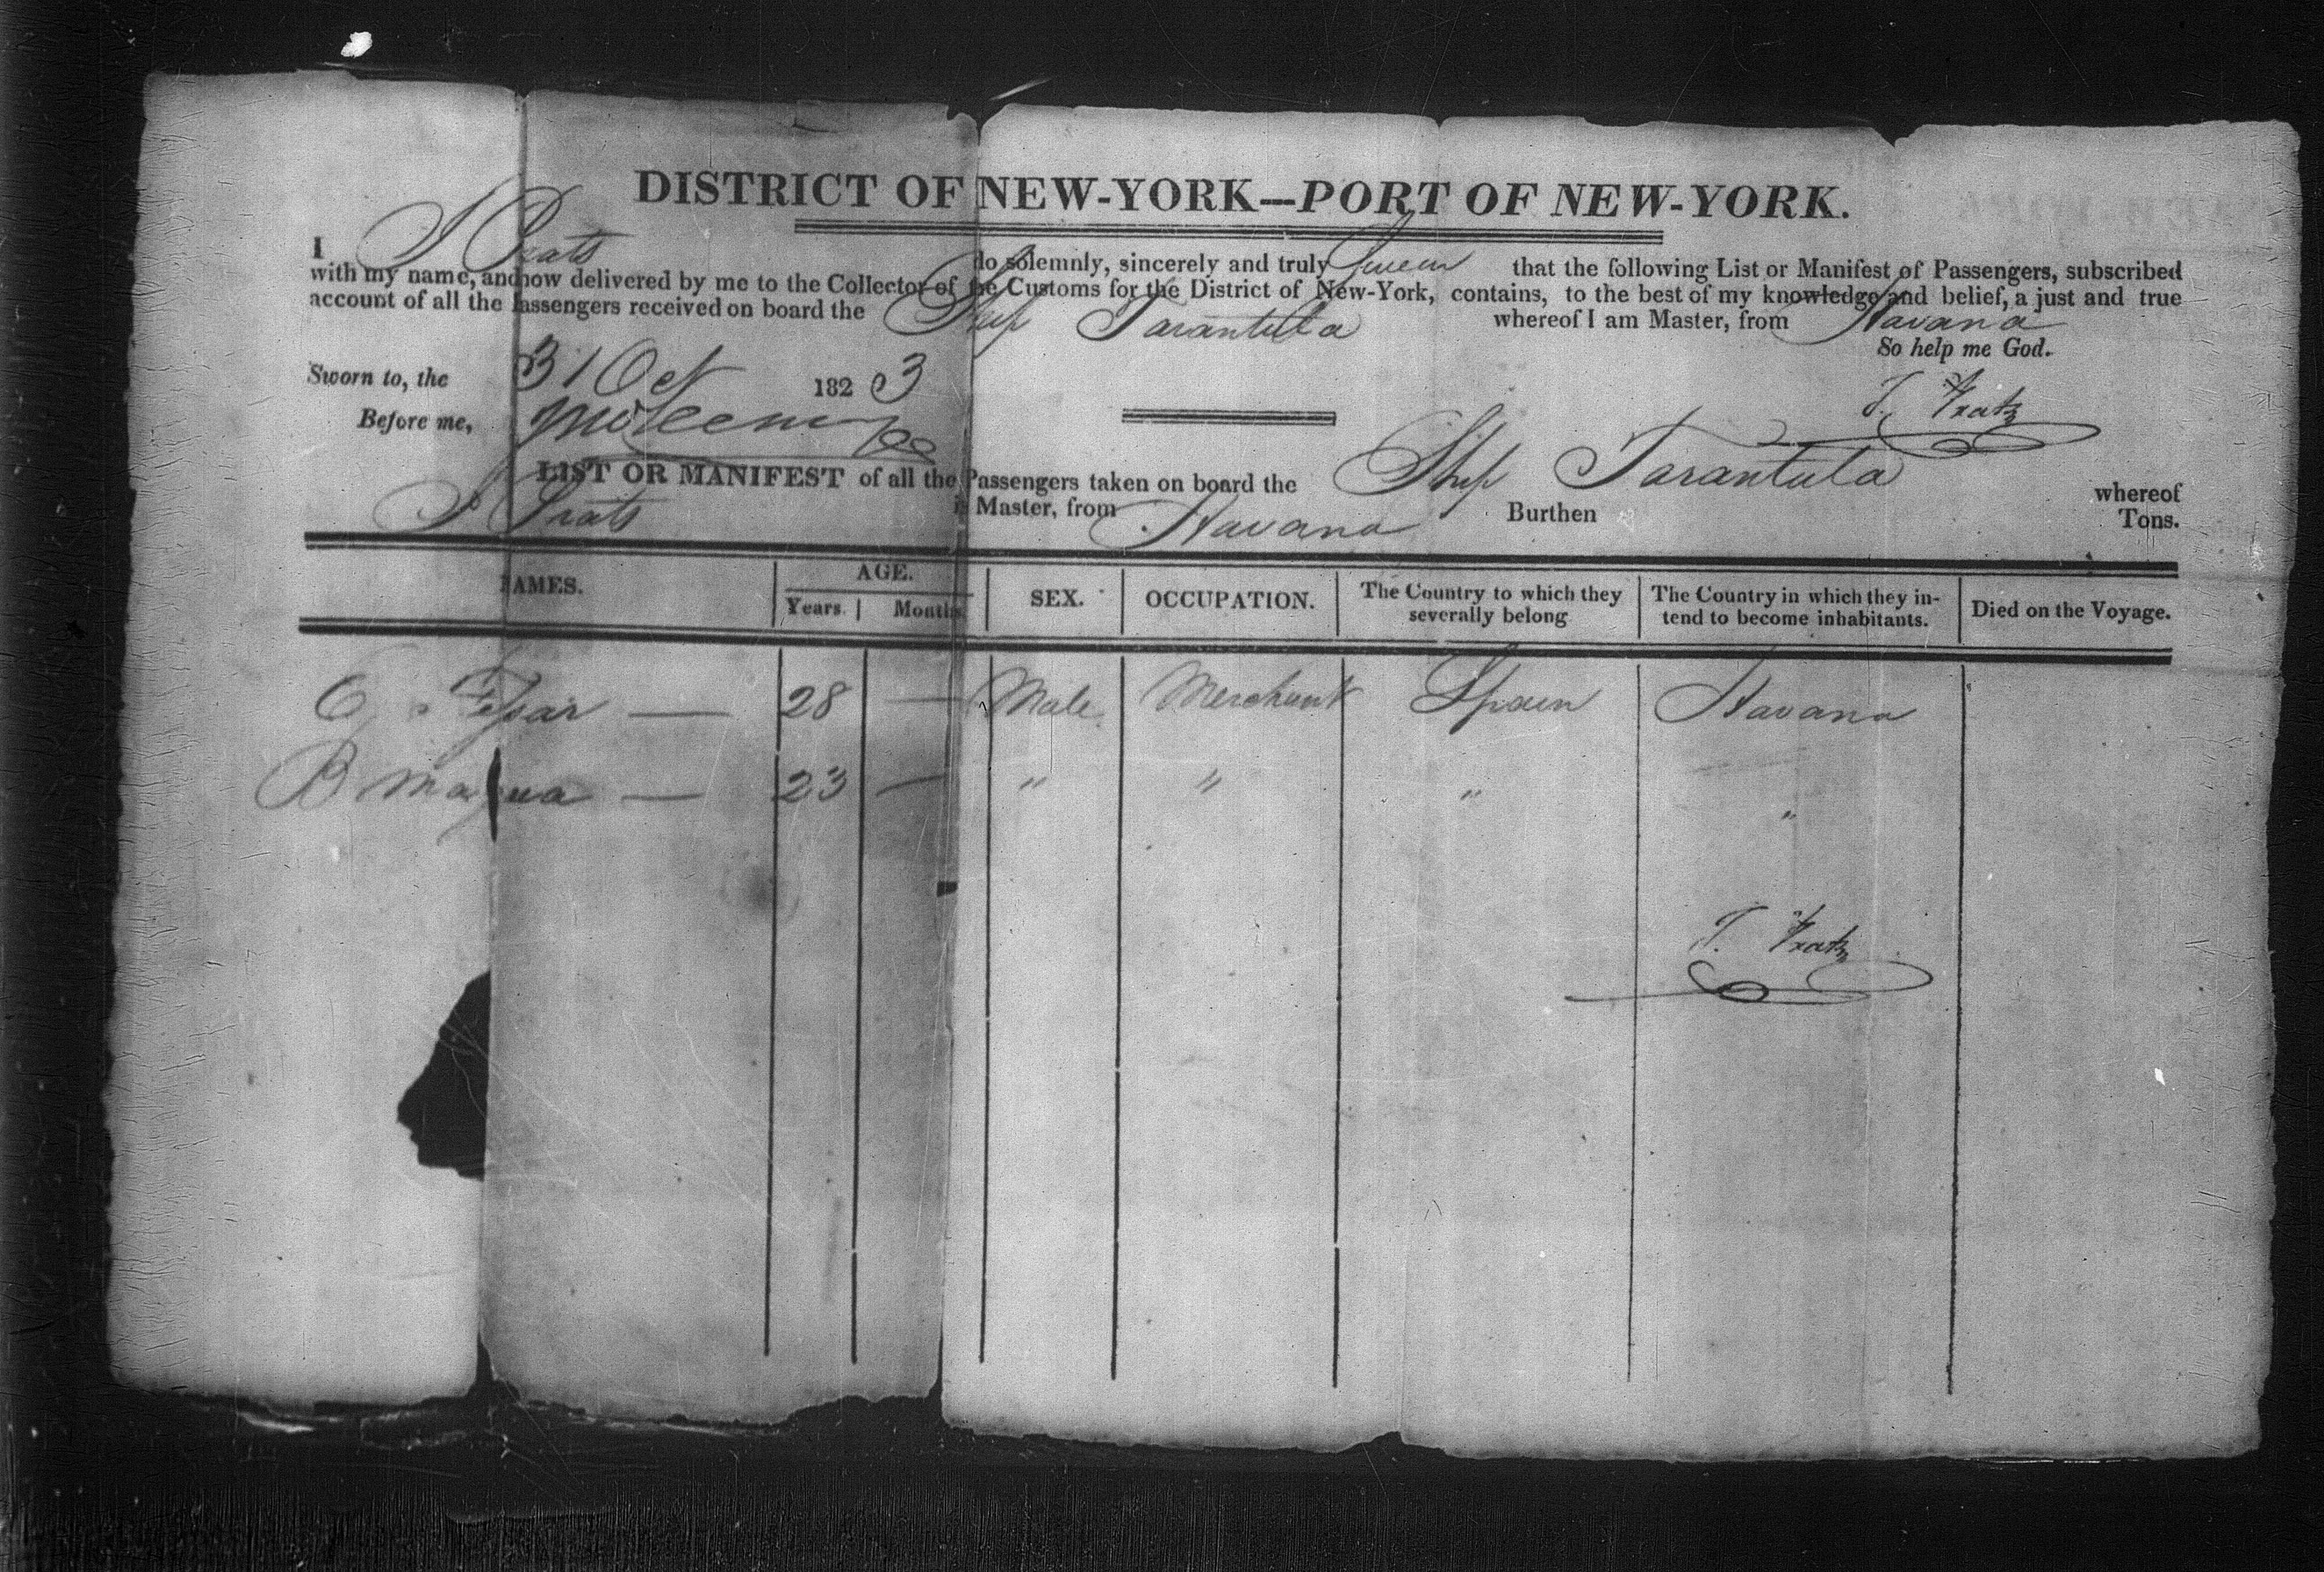 DISTRICT OF NEW-YORK—PORT OF NEW-YORK.
I do solemnly, sincerely and truly Swear that the following List or Manifest of Passengers, subscribed
with my name, and now delivered by me to the Collector of the Customs for the District of New-York, contains, to the best of my knowledge and belief, a just and true
account of all the Passengers received on board the Ship Tarantula whereof I am Master, from Havana
So help me God.
Sworn to, the 31 Oct 1823
Before me,
LIST OR MANIFEST of all the Passengers taken on board the Ship Tarantula whereof
is Master, from Havana Burthen Tons.
NAMES. AGE. SEX. OCCUPATION. The Country to which they severally belong The Country in which they in- tend to become inhabitants. Died on the Voyage.
Years. Months
28 — Male Merchant Spain Havana
B 23 — " " " "